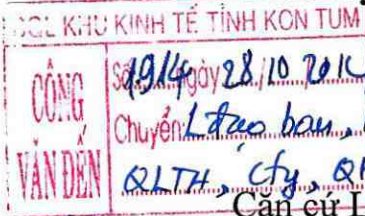 BQL KHU KINH TẾ TỈNH KON TUM
CÔNG VĂN ĐẾN
Số: 1914 ngày 28/10/201
Chuyển: L đạo ban,
QLTH, Cty,
Căn cứ